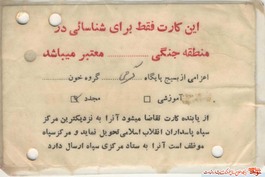 این کارت فقط برای شناسائی در
منطقه جنگی معتبر میباشد
اعزامی از بسیج پایگاه گروه خون
آموزشی مجدد
از یابنده کارت تقاضا میشود آنرا به نزدیکترین مرکز
سپاه پاسداران انقلاب اسلامی تحویل نماید و مرکز سپاه
موظف است آنرا به ستاد مرکزی سپاه ارسال دارد